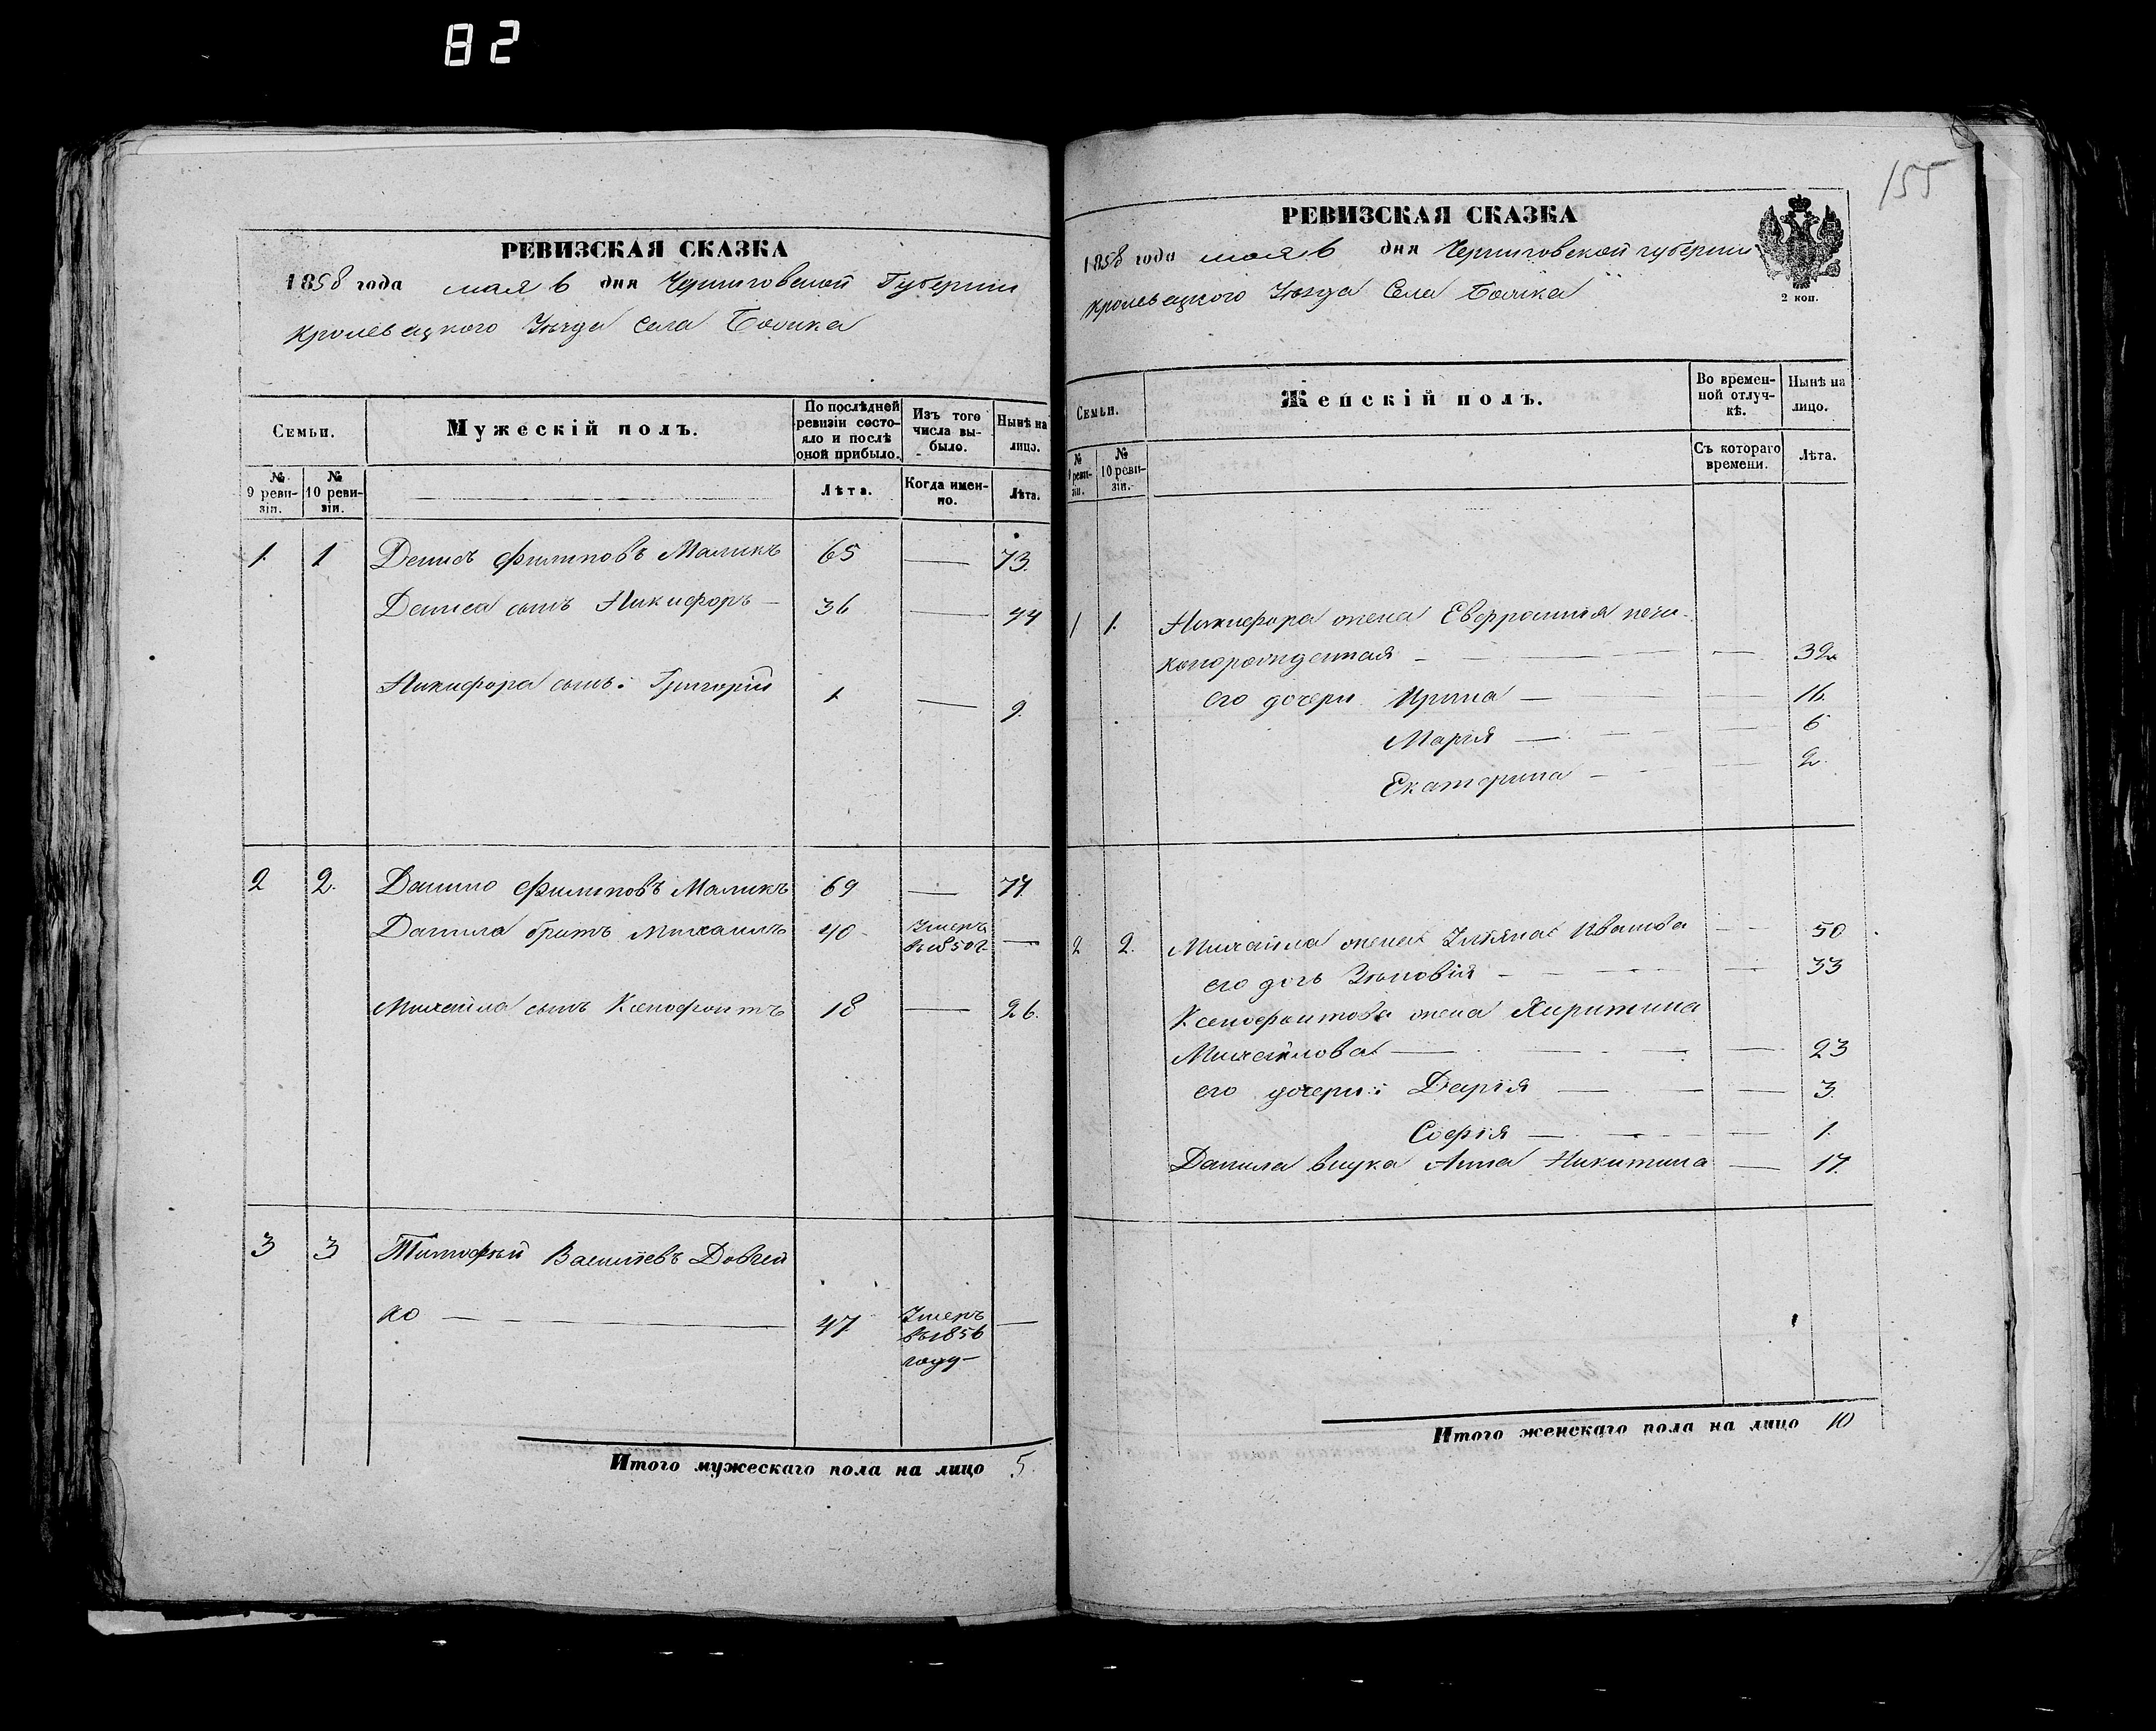 82
РЕВИЗСКАЯ СКАЗКА
1858 года мая 6 дня Черниговской Губернии
Кролевецкого Уезда Села
Семьи.
Мужескій полъ.
По послѣдней ревизіи состояло и послѣ оной прибыло.
Изъ того числа выбыло.
Нынѣ на лицо.
№ 9 ревизіи.
№ 10 ревизіи.
Лѣта.
Когда именно.
Лѣта.
1 1 Денисъ Филиповъ Маликъ 65 — 73.
Дениса сынъ Никифоръ — 36 — 44
Никифора сынъ: Григорій 1 — 9.
2 2. Данило Филиповъ Маликъ 69 — 77.
Данила братъ Михаилъ 40 Умеръ въ 1850 г. —
Михайла сынъ Ксенофонтъ 18 — 26.
3 3 Тимофѣй Васильевъ Довген
ко — 47 Умеръ въ 1856 году —
Итого мужескаго пола на лицо 5.
155
РЕВИЗСКАЯ СКАЗКА
1858 года мая 6 дня Черниговской губернии
Кролевецкого Уезда Села
2 коп.
Семьи.
Женскій полъ.
Во временной отлучкѣ.
Нынѣ на лицо.
№ 9 ревизіи.
№ 10 ревизіи.
Съ котораго времени.
Лѣта.
1 1. Никифора жена
— — 39
его дочери Ирина — — 16.
Марія — — 6
Екатерина — — 2.
2 2. Михайла жена Ульяна Иванова — 50
его дочь Зѣновія — — 33
Ксенофонтова жена Харитина
Михайлова — — 23
его дочери: Дарія — — 3.
Софія — — 1.
Данила внука Анна Никитина — 17.
Итого женскаго пола на лицо 10